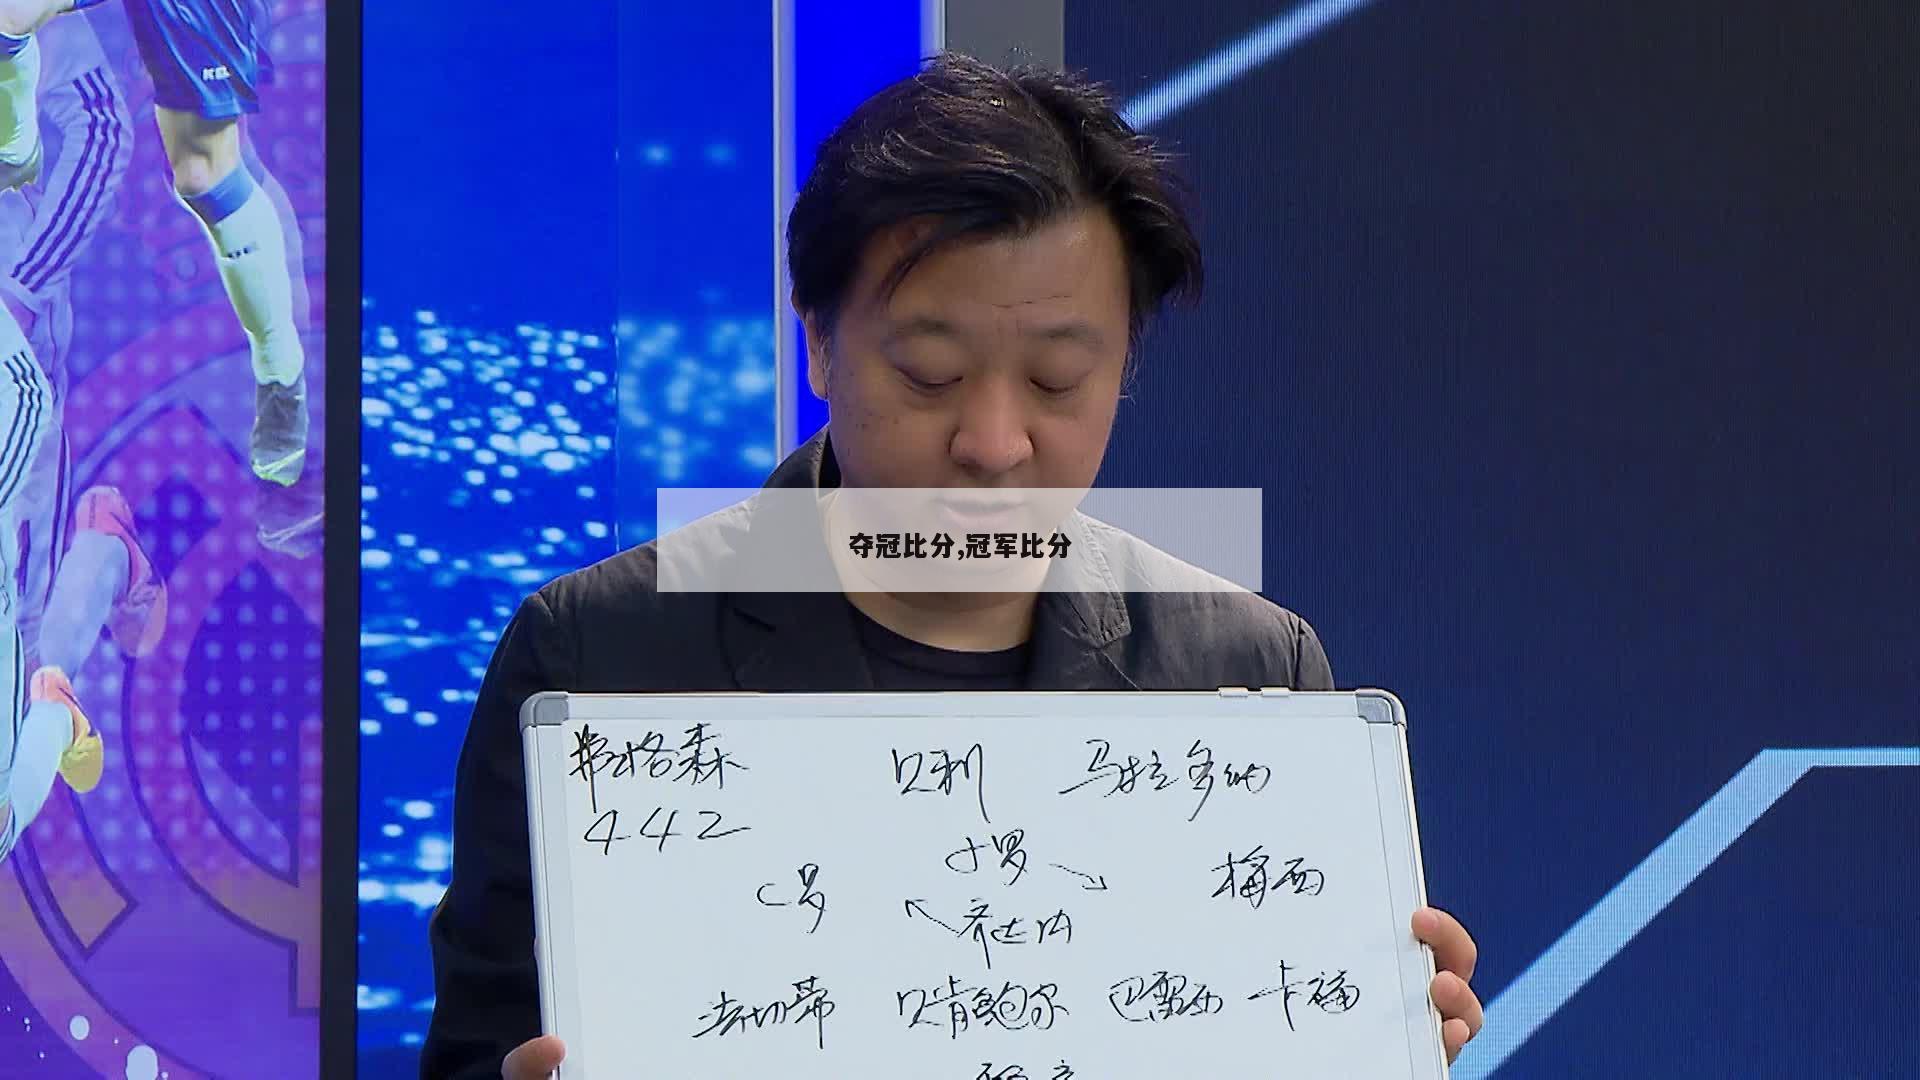 KQ
夺冠比分,冠军比分
弗格森 贝利 马拉多纳
442
小罗
C罗 梅西
齐达内
法切蒂 贝肯鲍尔 巴雷西 卡福